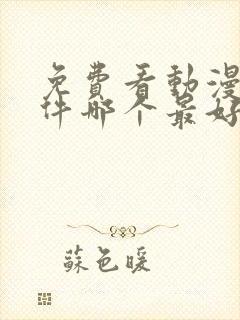 免費看動漫
件哪个最好
蘇色暖